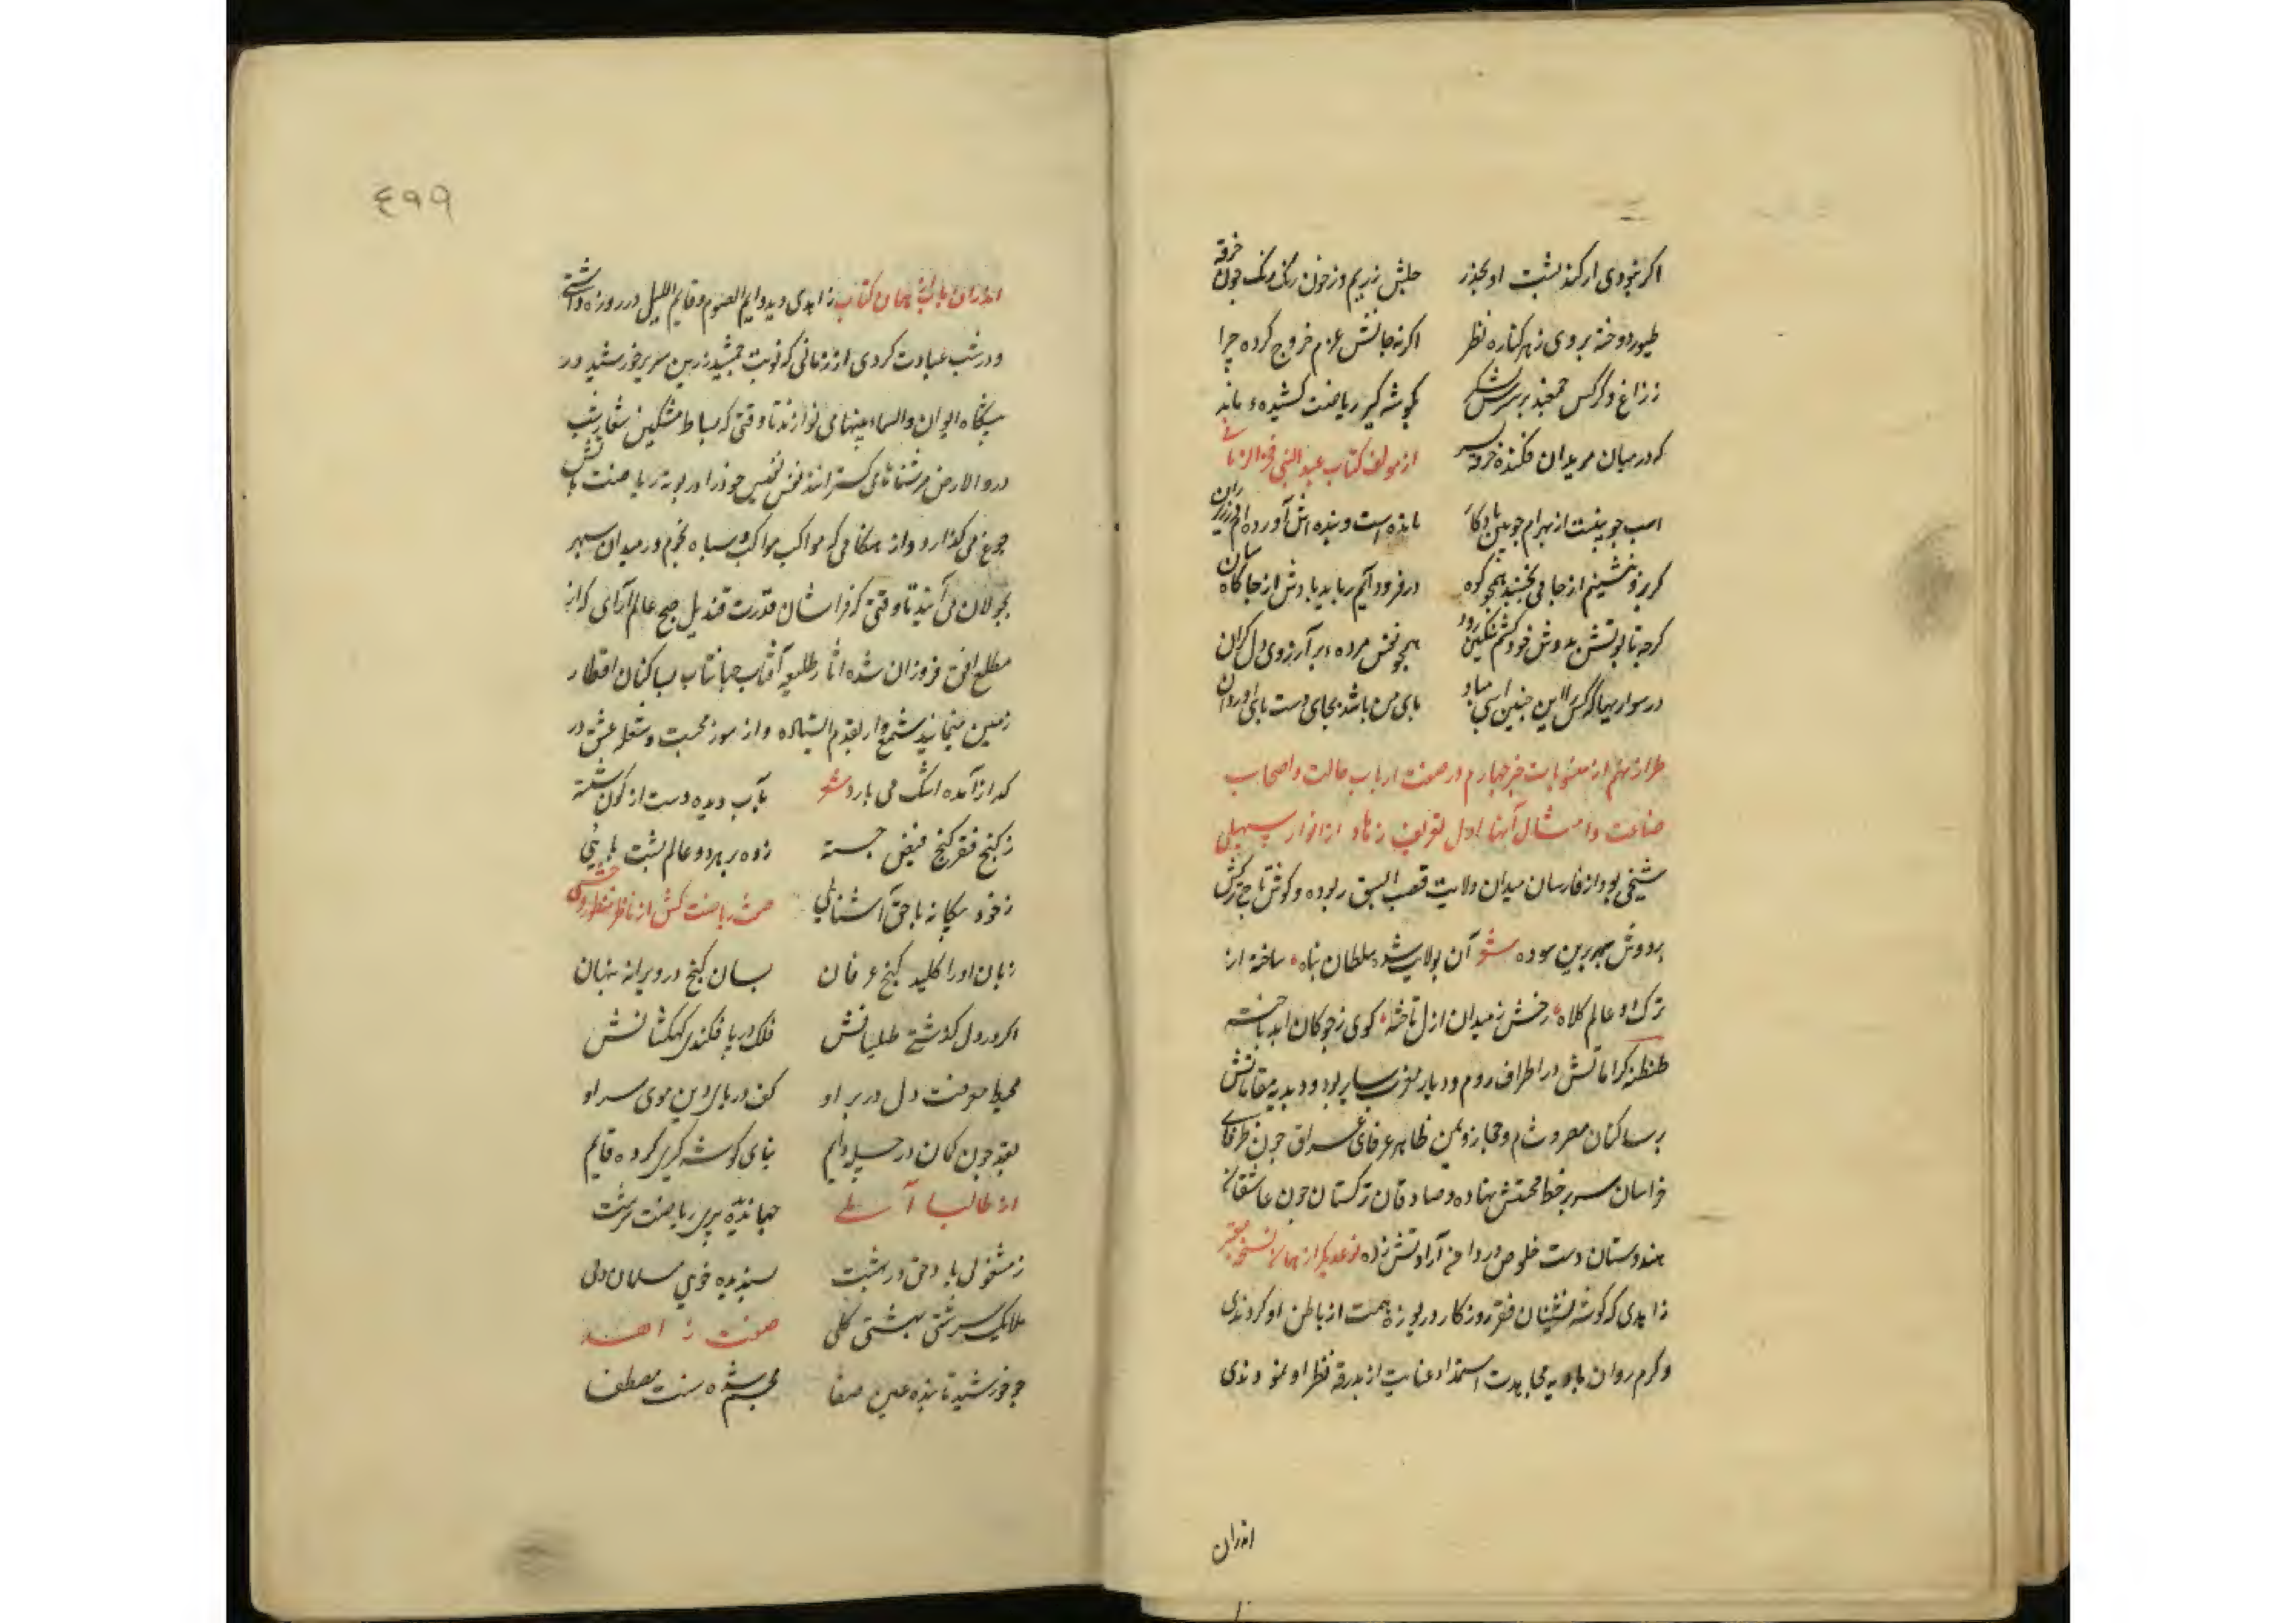 اگر نبودی ار کند پشت او بجذر جلش ز ریم و ز خون رنگ رنگ چون خرقه
طیور دوخته بر وی ز هر کناره نظر اگر نه جانش عزم خروج کرده چرا
ز زاغ و کرکس جمعند بر سرش لشکر گوشه گیر ریاضت کشیده ء ماند
که در میان مریدان فکنده خرقه ز سر از مولف کتاب عبد النبی فخر الزمانی
اسب چوبینست از بهرام چوبین یادگار مانده است و بنده اش آورده ام
گر برو بنشینم از جا می نجنبد همچو کوه ور فرود آیم رباید بادش از جا کاه سان
گرچه تابوتش بدوش خود کشم لیکن رود همچو نعش مرده ء بر آرزوی دل گران
در سواریها گر کس را این چنین اسبی مباد پای من باشد بجای دست پای او روان
طراز نهم از منسوبات خبر چهارم در صفت ارباب حالت و اصحاب
صناعت و امثال آنها اول تعریف زهاد از انوار سهیلی
شیخی بود از فارسان میدان ولایت قصب السبق ربوده و گوشه تاج ترکش
بر دوش سپهر برین سوده شعر آن بولایت شده سلطان پناه ساخته از
ترک دو عالم کلاه رخش ز میدان ازل تاخته گوی ز چوگان ابد باخته
طنطنه کراماتش در اطراف روم و دیار مغرب سایر بود و دبدبه مقاماتش
بر ساکنان مصر و شام و حجاز و یمن ظاهر عرفای عراق چون ظرفای
خراسان سر بر خط محبتش نهاده و صادقان ترکستان چون عاشقان
هندوستان دست خلوص در دامن آرادتش زده نوعدیگر از همان نسخه معتبر
زاهدی که گوشه نشینان فقر روزگار دریوزه همت از باطن او کردندی
و گرم روان بادیه مجاهدت استمداد عنایت از بدرقه نظر او نمودندی
اندران
٤٩٩
اندران باب از همان کتاب زاهدی دید دایم الصوم و قایم اللیل در روز روزه داشتی
و در شب عبادت کردی از زمانی که نوبت جمشید زرین سریر خورشید در
پیشگاه ایوان والسماء بنیناها می نوازند تا وقتی که بساط مشکین شعار شب
در والارض فرشناها می گسترانند نفس نفیس خود را در بوته ریاضت بآتش
جوع می گدازد و از هنگامی که مواکب کواکب و سپاه نجوم در میدان سپهر
بجولان می آیند تا وقتی که فراشان قدرت قندیل صبح عالم آرای که از
مطلع افق فروزان شده اثار طلیعه آفتاب جهانتاب بساکنان اقطار
زمین مینمایند شمع وار بقدم ایستاده و از سوز محبت و شعله عشق در
گداز آمده اشک می بارد شعر بآب دیده دست از کون شسته
ز کنج فقر گنج فیض جسته زده بر هر دو عالم پشت پایی
ز خود بیگانه با حق آشنایی صفت ریاضت کش از ناظر و منظور وحشی
زبان او را کلید گنج عرفان بسان گنج در ویرانه پنهان
اگر در دل گذشتی طلیسانش فلک در پا فکندی کهکشانش
محیط معرفت دل در بر او کف دریای دین موی سر او
بقد چون کمان در چله دایم بنای گوشه گیری کرده قایم
از طالبا آملی جهاندیده پیری ریاضت سرشت
ز مشغولی یاد حق در بهشت پسندیده خویی مسلمان دلی
ملایک سرشتی بهشتی گلی صفت زاهد
چو خورشید تابنده عین صفا مجسم شده سنت مصطفا